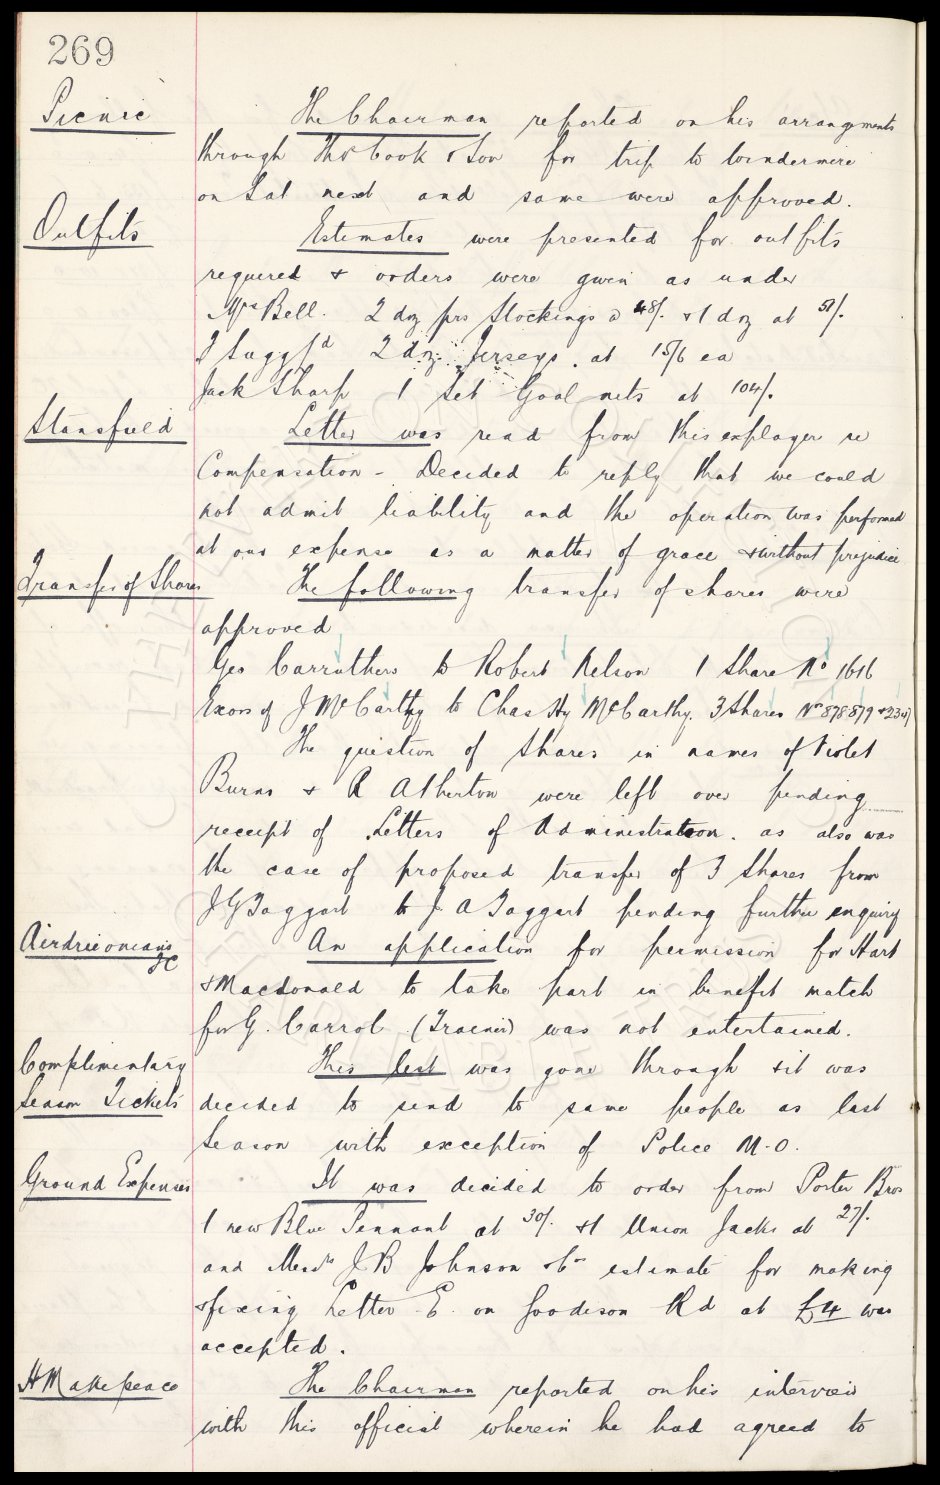 269
Picnic
The Chairman reported on his arrangements
through Thos Cook & Son for trip to Windermere
on Sat next and same were approved.
Outfits
Estimates were presented for outfits
required & orders were given as under
Mrs Bell. 2 doz prs Stockings @ 48/. & 1 doz at 51/.
F Sugg Ld 2 doz Jerseys. at 15/6 ea
Jack Sharp 1 Set Goal nets at 104/.
Stansfield
Letter was read from this explayer re
Compensation - Decided to reply that we could
not admit liability and the operation was performed
at our expense as a matter of grace & without prejudice
Transfer of Shares
The following transfer of shares were
approved
Geo Carruthers to Robert Nelson 1 Share No 1616
Exors of J McCarthy to Chas Hy McCarthy. 3 Shares Nos 878 879 & 234
The question of Shares in names of Violet
Burns & R Atherton were left over pending
receipt of Letters of Administration. as also was
the case of proposed transfer of 3 Shares from
J G Taggart to J. A Taggart pending further enquiry
Airdrieonians
FC
An application for permission for Hart
& Macdonald to take part in benefit match
for G. Carrol (Trainer) was not entertained.
Complimentary
Season Tickets
This list was gone through & it was
decided to send to same people as last
Season with exception of Police M.O.
Ground Expenses
It was decided to order from Porter Bros
1 new Blue Pennant at 30/. & 1 Union Jacks at 27/.
and Messrs J B Johnson & Co estimate for making
& fixing Letter E. on Goodison Rd at £4 was
accepted.
H Makepeace
The Chairman reported on his interview
with this official wherein he had agreed to